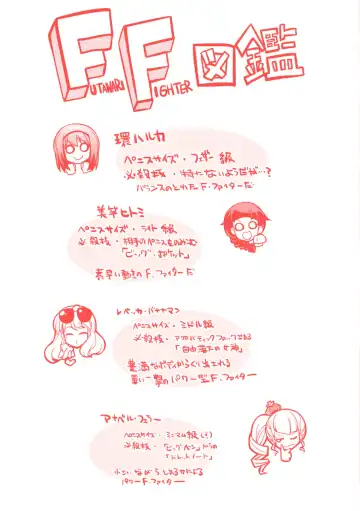 FUTANARI FIGHTER 図鑑
環ハルカ
ペニスサイズ・フェザー級
必殺技・特にないようだが…?
バランスのとれたF・ファイターだ
美竿ヒトミ
ペニスサイズ・ライト級
必殺技・相手のペニスをのみこむ
「ビッグ・ポケット」
素早い動きのF・ファイターだ
レベッカ・バナナマン
ペニスサイズ・ミドル級
必殺技・アクロバティックファックである
「自由落下の女神」
豊満なボディからくり出される
重い一撃のパワー型F・ファイター
アナベル・フェラー
ペニスサイズ・ミニマム級(!)
必殺技・
小さいながらも
パワーF・ファイター